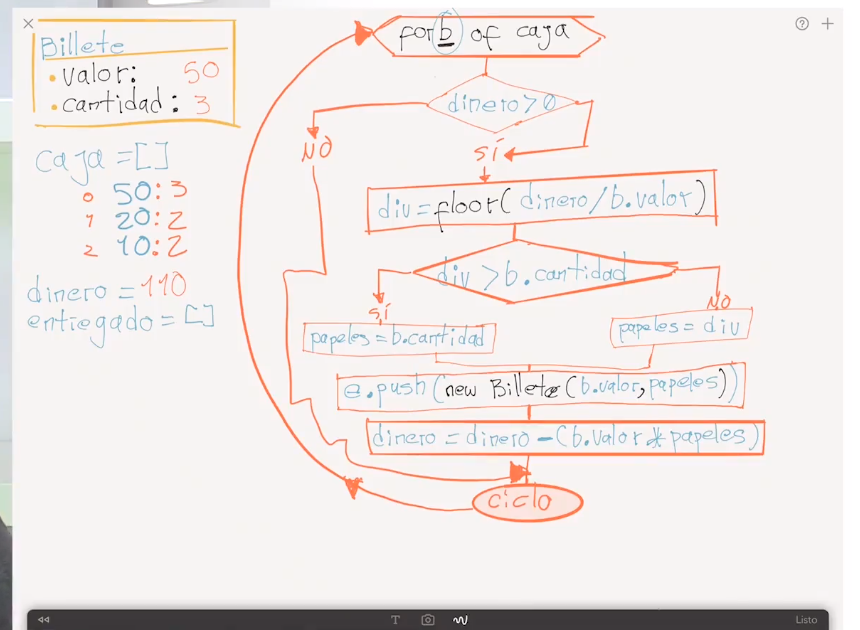 Billete
• valor: 50
• cantidad: 3
caja = []
0 50:3
1 20:2
2 10:2
dinero = 110
entregado = []
for b of caja
dinero > 0
NO
SÍ
div = floor(dinero/b.valor)
div > b.cantidad
sí
NO
papeles = b.cantidad
papeles = div
e.push(new Billete(b.valor, papeles))
dinero = dinero - (b.valor * papeles)
ciclo
T
Listo